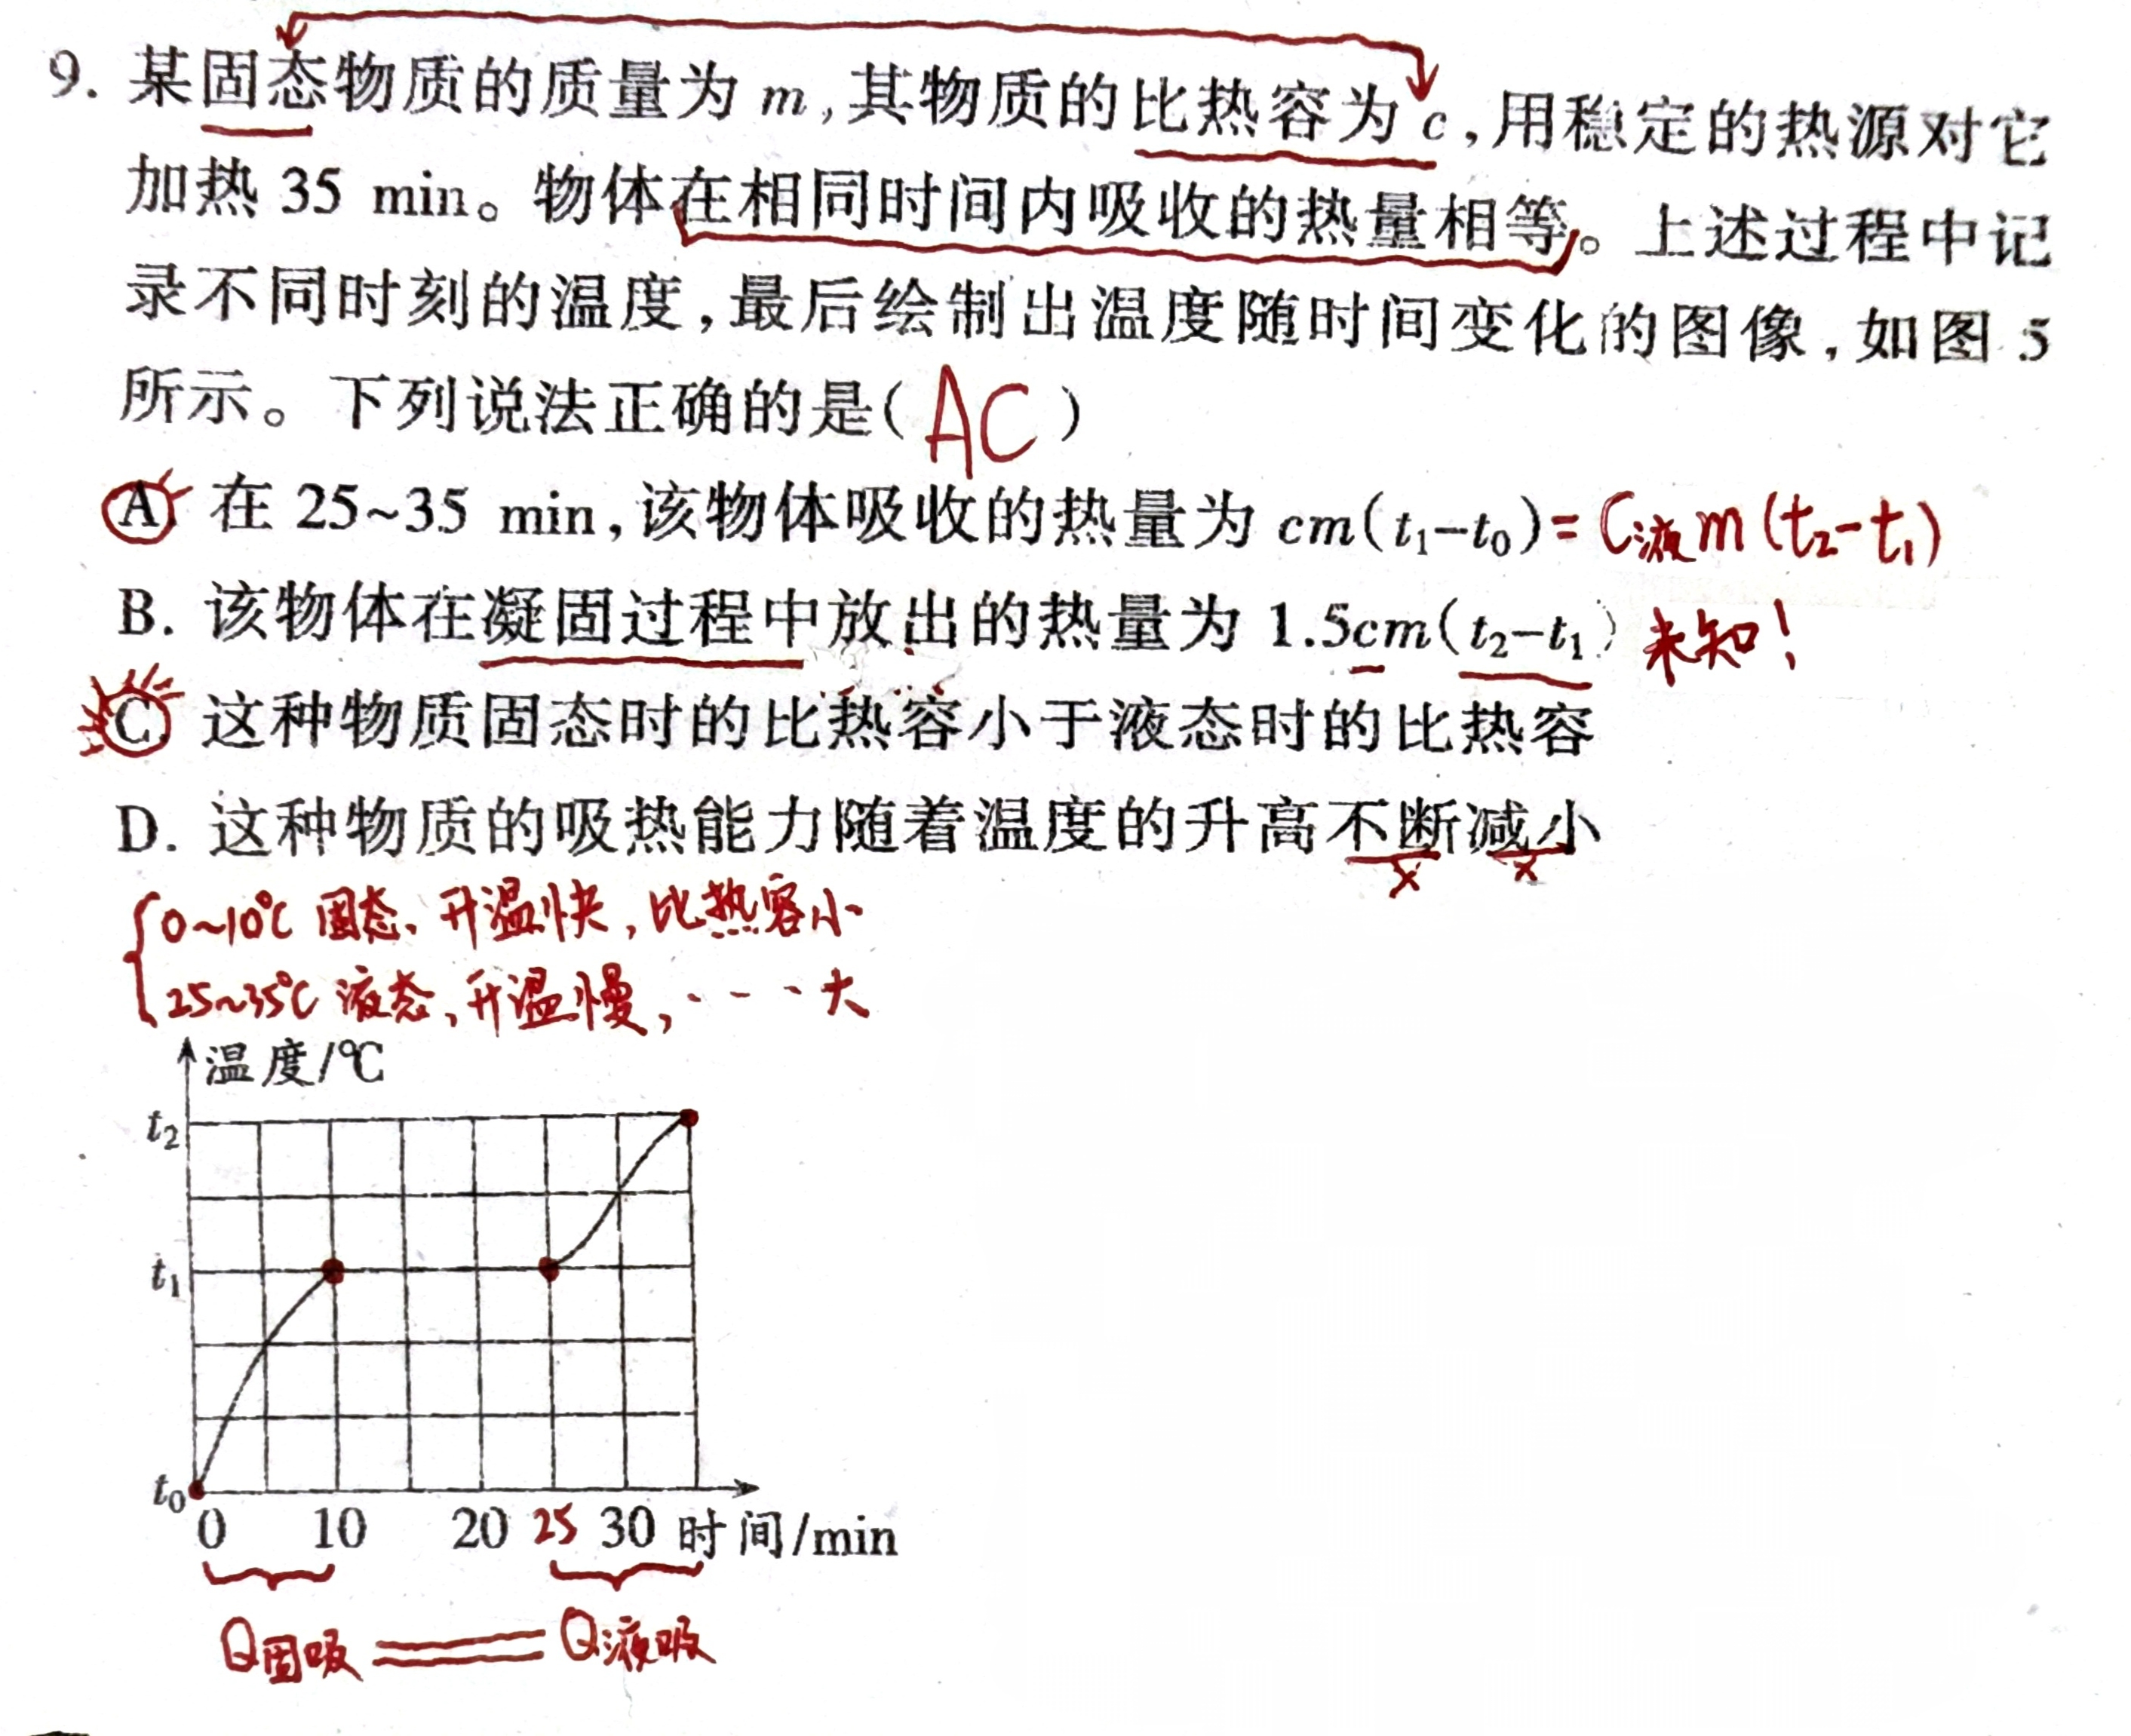 9. 某固态物质的质量为 m,其物质的比热容为 c,用稳定的热源对它
加热 35 min。物体在相同时间内吸收的热量相等。上述过程中记
录不同时刻的温度,最后绘制出温度随时间变化的图像,如图 5
所示。下列说法正确的是( AC )
A. 在 25~35 min,该物体吸收的热量为 cm(t₁-t₀)= C液m(t₂-t₁)
B. 该物体在凝固过程中放出的热量为 1.5cm(t₂-t₁) 未知!
C. 这种物质固态时的比热容小于液态时的比热容
D. 这种物质的吸热能力随着温度的升高不断减小
0~10℃ 固态、升温快,比热容小
25~35℃ 液态,升温慢,····大
温度/℃
t₂
t₁
t₀
0 10 20 25 30 时间/min
Q固吸 = Q液吸